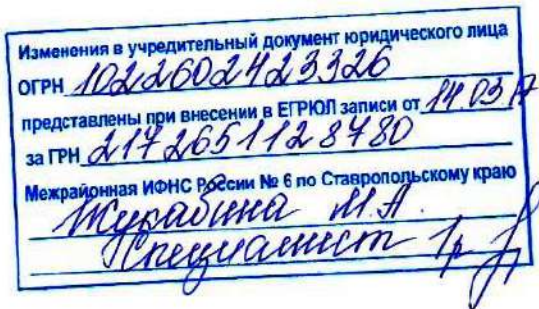 Изменения в учредительный документ юридического лица
ОГРН 1022602423326
представлены при внесении в ЕГРЮЛ записи от 14.03.17
за ГРН 2172651128780
Межрайонная ИФНС России № 6 по Ставропольскому краю
М.А.
Специалист